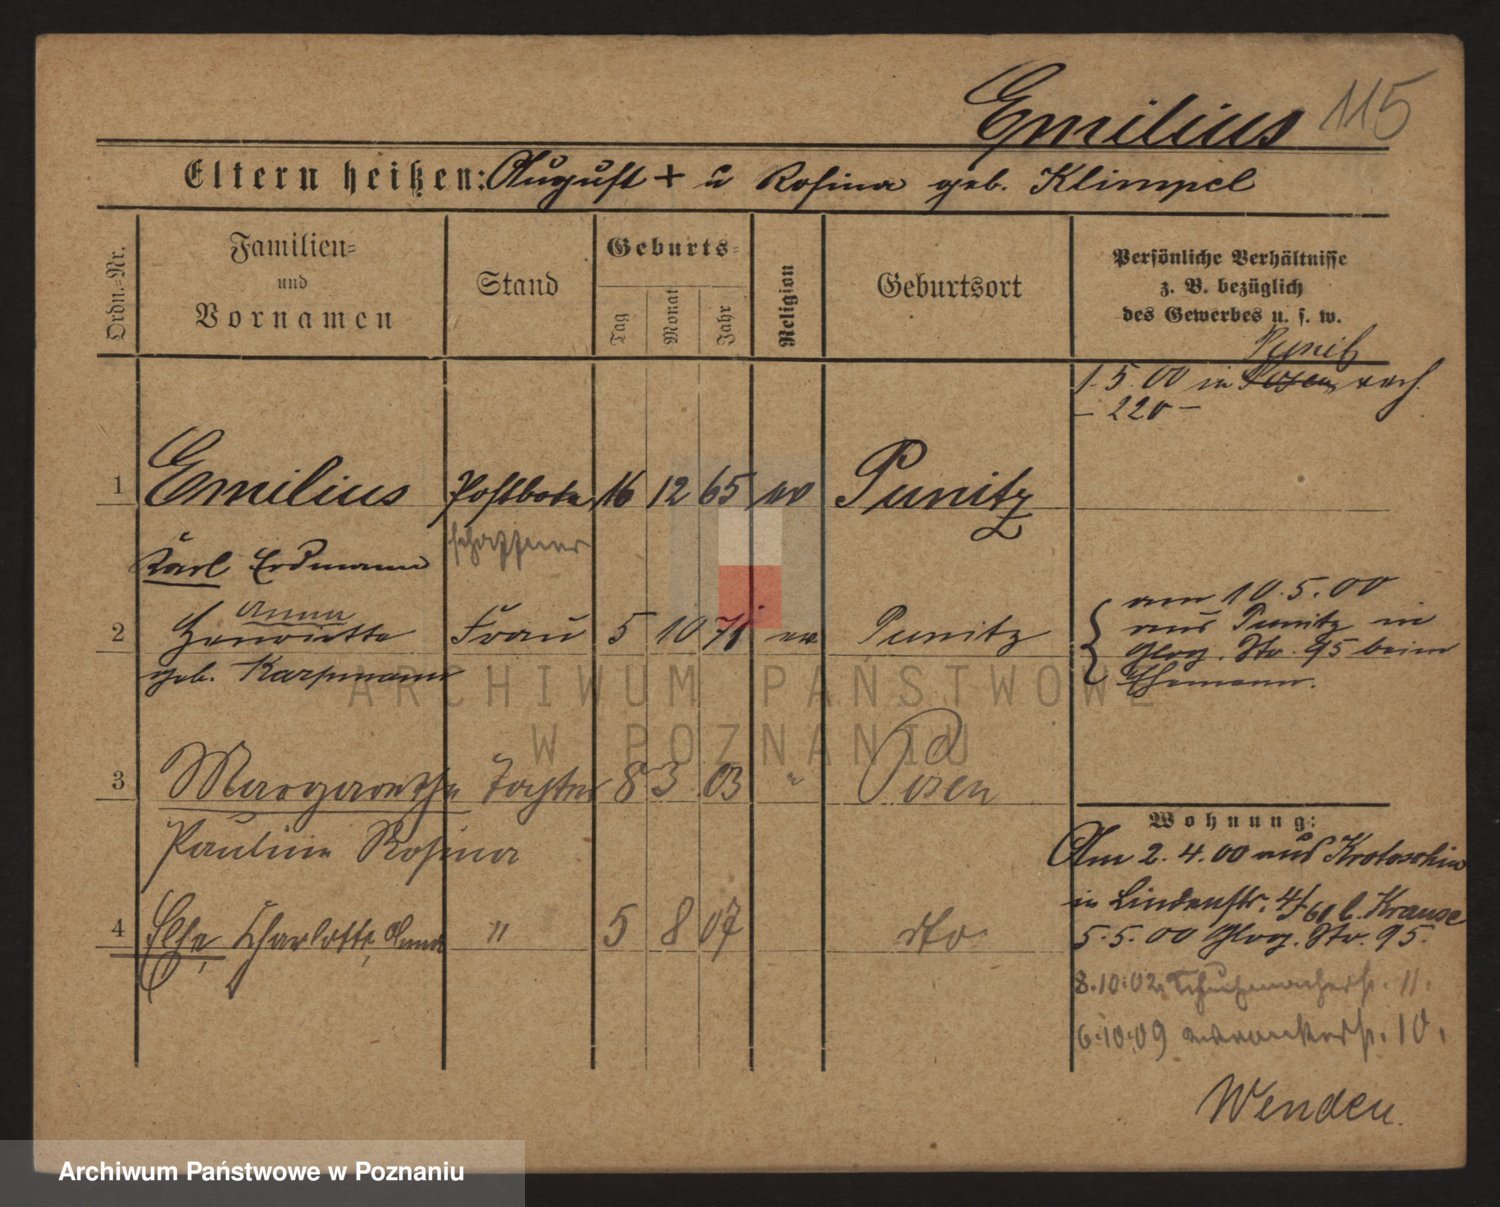 Emilius 115
Eltern heißen: August + u Rosina geb. Klimpel
Ordn.-Nr.
Familien-
und
Vornamen
Stand
Geburts-
Tag
Monat
Jahr
Religion
Geburtsort
Persönliche Verhältnisse
z. B. bezüglich
des Gewerbes u. s. w.
Punitz
1.5.00 in Posen verh.
- 220 -
1 Emilius Postbote 16 12 65 ev Punitz
schaffner
Karl Erdmann
Anna
2 Henriette Frau 5 10 71 ev Punitz
geb. Karpmann
am 10.5.00
aus Punitz in
Glog. Str. 95 beim
Ehemann.
3 Margarethe Tochter 8 3 03 " Posen
Pauline Rosina
4 Else, Charlotte, " 5 8 07 dto
Wohnung:
Am 2.4.00 aus Krotoschin
in Lindenstr. 4/ b. Krause
5.5.00 Glog. Str. 95.
8.10.02 Schuhmacherst. 11.
6.10.09 10.
Wenden.
ARCHIWUM PAŃSTWOWE
W POZNANIU
Archiwum Państwowe w Poznaniu